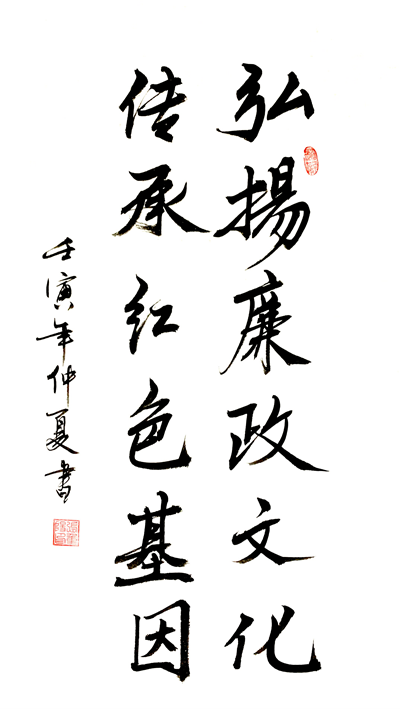 弘揚廉政文化
传承红色基因
壬寅年仲夏書